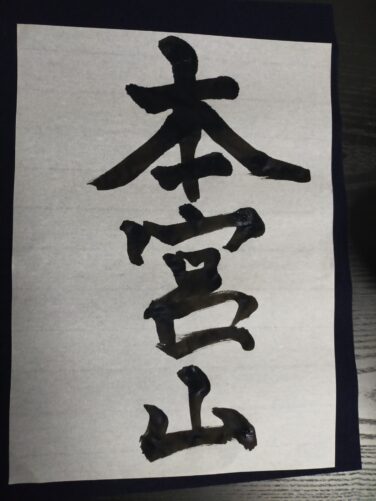 本宮山